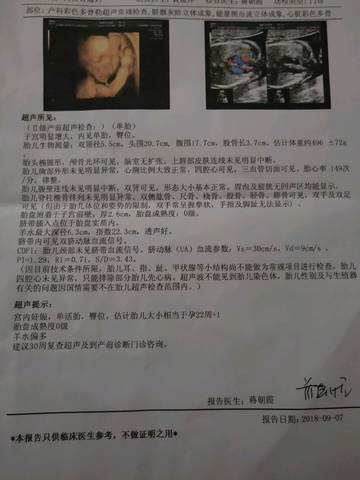 部位:产科彩色多普勒超声常规检查,脏器灰阶立体成象,能量图血流立体成象,心脏彩色多普
超声所见:
(Ⅱ级产前超声检查:)(单胎)
子宫明显增大,内见单胎,臀位。
胎儿生物测量:双顶径5.5cm,头围20.7cm,腹围17.7cm,股骨长3.7cm。估计体重约496 ±72g
胎头椭圆形,颅骨光环可见,脑室无扩张。上唇部皮肤连续未见明显中断。
胎儿胸部外形未见明显异常,心胸比例大致正常,四腔心可见,三血管切面可见,胎心率 149次/分,律整。
胎儿腹壁连续未见明显中断。双肾可见,形态大小基本正常,胃泡及膀胱无回声区均能显示。
胎儿脊柱椎骨排列未见明显异常。双侧肱骨、尺骨、桡骨、股骨、胫骨、腓骨可见,双手及双足可见(但由于胎儿体位和姿势的限制,双手常呈握拳状、手指及脚趾无法显示)。
胎盘附着于子宫前壁,厚2.6cm,胎盘成熟度: 0级。
脐带插入点位于胎盘实质内。
羊水最大深径6.3cm,指数22.3cm,透声好。
脐带内可见双脐动脉血流信号。
CDFI: 胎儿颈部未见脐带血流信号。脐动脉(UA)血流参数: Vs=30cm/s, Vd=9cm/s,
PI=1.29, RI=0.71, S/D=3.43。
(因目前技术条件所限,胎儿耳、指、趾、甲状腺等小结构尚不能做为常规项目进行检查,胎儿四腔心未见异常,只能排除部分胎儿先心病。超声波不能见到胎儿染色体,胎儿性别及与生殖器有关的问题因国情需要不在胎儿超声检查范围内。)
超声提示:
宫内妊娠,单活胎,臀位,估计胎儿大小相当于孕22周+1
胎盘成熟度0级
羊水偏多
建议30周复查超声及到产前诊断门诊咨询。
报告医生: 蒋朝霞
报告日期:2018-09-07
*本报告只供临床医生参考,不做证明之用*